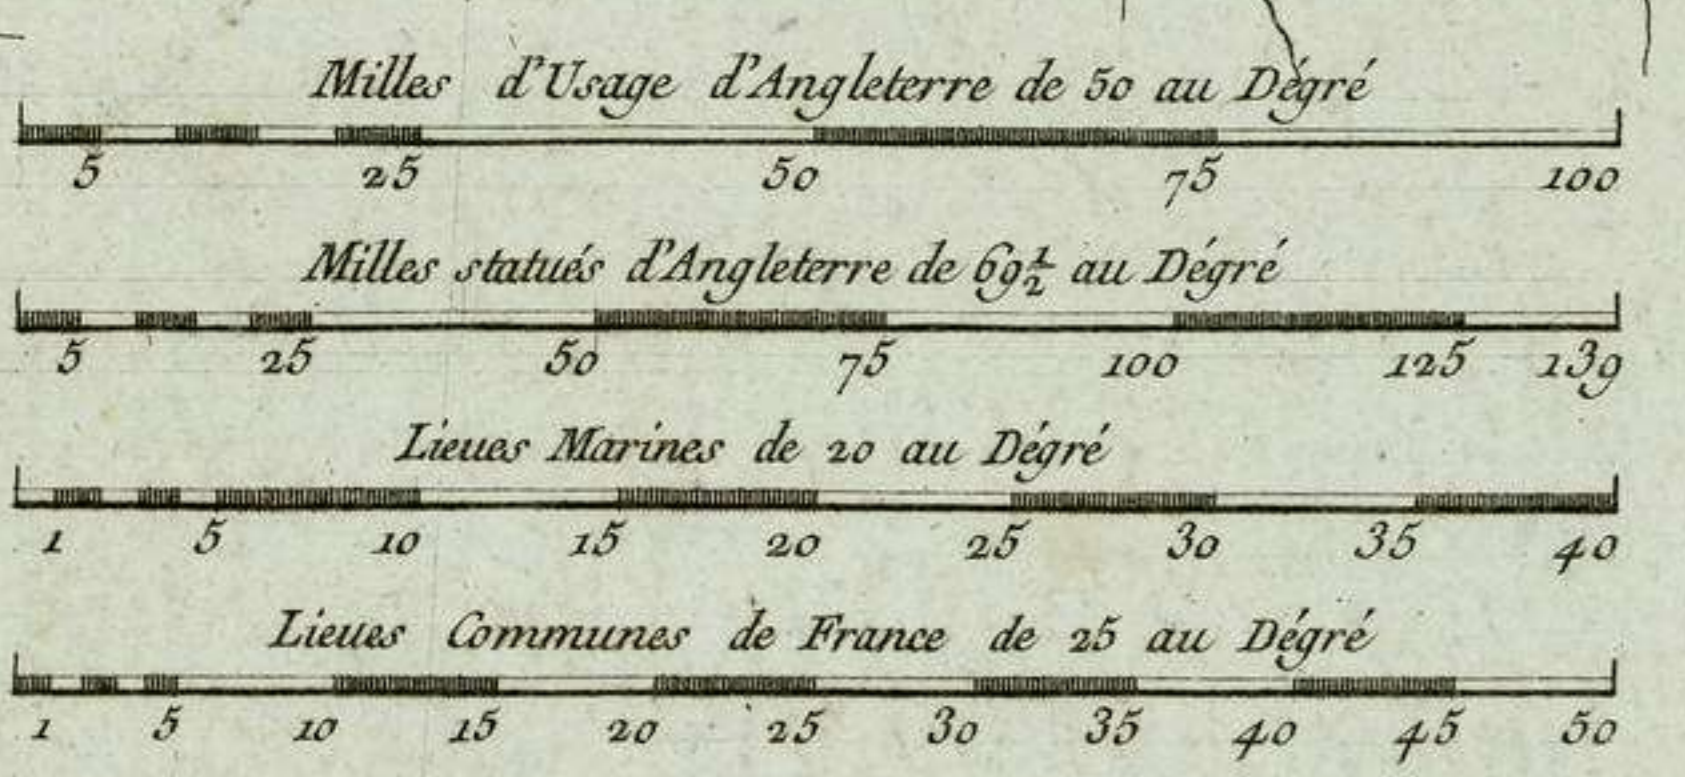 Milles d'Usage d'Angleterre de 50 au Dégré
5 25 50 75 100
Milles statués d'Angleterre de 69½ au Dégré
5 25 50 75 100 125 139
Lieues Marines de 20 au Dégré
1 5 10 15 20 25 30 35 40
Lieues Communes de France de 25 au Dégré
1 5 10 15 20 25 30 35 40 45 50